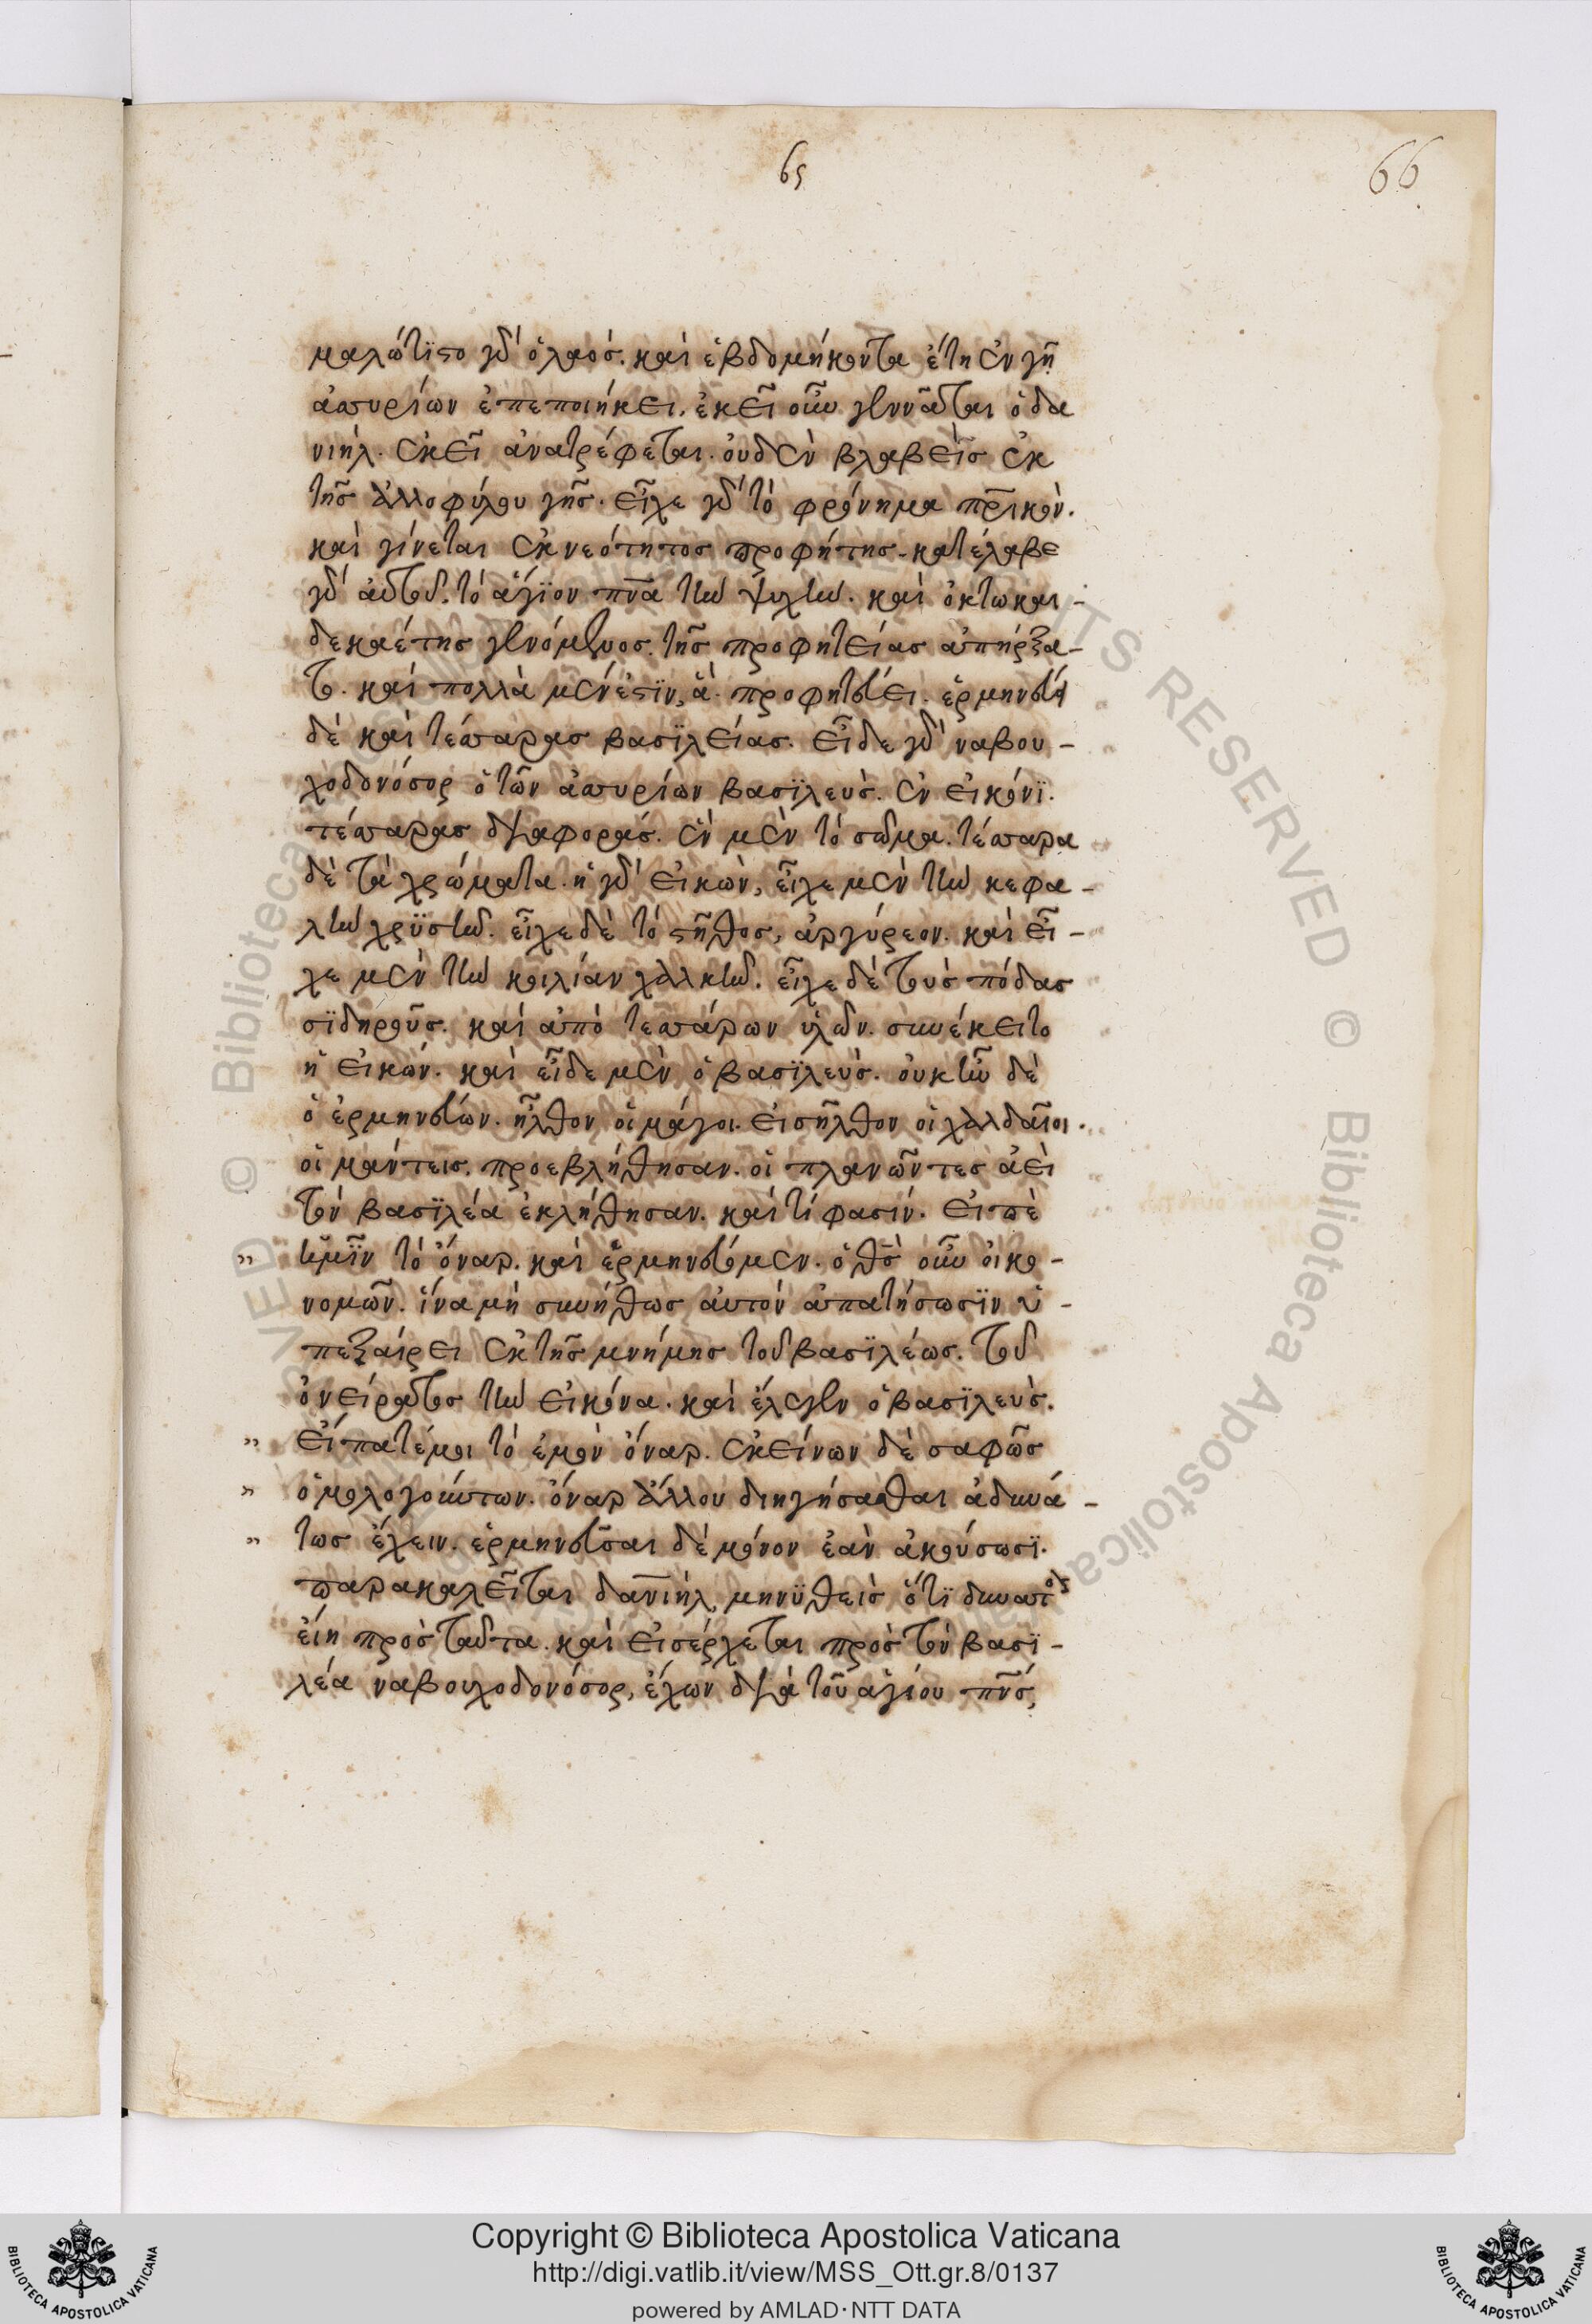 65
66
μαλώτιστο γὰρ ὁ λαός. καὶ ἑβδομήκοντα ἔτη ἐν γῇ
ἀσσυρίων ἐπεποιήκει. ἐκεῖ οὖν γεννᾶται ὁ δα
νιήλ. ἐκεῖ ἀνατρέφεται. οὐδὲν βλαβεὶς ἐκ
τῆς ἀλλοφύλου γῆς. εἶχε γὰρ τὸ φρόνημα πρικόν.
καὶ γίνεται ἐκ νεότητος προφήτης. κατέλαβε
γὰρ αὐτοῦ. τὸ ἅγϊον πνα τὴν ψυχήν. καὶ ὀκτωκαι-
δεκαέτης γενόμενος. τῆς προφητείας ἀπήρξα-
το. καὶ πολλὰ μὲν ἐστϊν, ἃ προφητεύει. ἑρμηνεύει
δὲ καὶ τέσσαρας βασϊλείας. εἶδε γὰρ ναβου-
χοδονόσορ ὁ τῶν ἀσσυρίων βασϊλεύς. ἐν εἰκόνϊ.
τέσσαρας διαφοράς. ἓν μὲν τὸ σῶμα. τέσσαρα
δὲ τὰ χρώματα. ἡ γὰρ εἰκών, εἶχε μὲν τὴν κεφα-
λὴν χρϋσῆν. εἶχε δὲ τὸ στῆθος, ἀργύρεον. καὶ εἶ-
χε μὲν τὴν κοιλίαν χαλκῆν. εἶχε δὲ τοὺς πόδας
σϊδηροῦς. καὶ ἀπὸ τεσσάρων ὑλῶν. συνέκειτο
ἡ εἰκών. καὶ εἶδε μὲν ὁ βασϊλεύς. οὐκ ἦν δὲ
ὁ ἑρμηνεύων. ἦλθον οἱ μάγοι. εἰσῆλθον οἱ χαλδαῖοι.
οἱ μάντεις. προεβλήθησαν. οἱ πλανῶντες ἀεὶ
τὸν βασϊλέα ἐκλήθησαν. καὶ τί φασίν. εἰπὲ
ἡμῖν τὸ ὄναρ. καὶ ἑρμηνεύομεν. ὁ θς οὖν οἰκο-
νομῶν. ἵνα μὴ συνήθως αὐτὸν ἀπατήσωσϊν ὑ-
πεξαίρει ἐκ τῆς μνήμης τοῦ βασϊλέως. τοῦ
ὀνείρατος τὴν εἰκόνα. καὶ ἔλεγεν ὁ βασϊλεύς.
εἴπατέ μοι τὸ ἐμὸν ὄναρ. ἐκείνων δὲ σαφῶς
ὁμολογούντων. ὄναρ ἄλλου διηγήσασθαι ἀδυνά-
τως ἔχειν. ἑρμηνεῦσαι δὲ μόνον ἐὰν ἀκούσωσϊ.
παρακαλεῖται δανιὴλ, μηνϋθεὶς ὅτϊ δυνατὸς
εἴη πρὸς ταῦτα. καὶ εἰσέρχεται πρὸς τὸν βασϊ-
λέα ναβουχοδονόσορ, ἔχων διὰ τοῦ ἁγίου πνς,
© Biblioteca Apostolica Vaticana
Copyright © Biblioteca Apostolica Vaticana
http://digi.vatlib.it/view/MSS_Ott.gr.8/0137
powered by AMLAD·NTT DATA
BIBLIOTECA APOSTOLICA VATICANA
BIBLIOTECA APOSTOLICA VATICANA